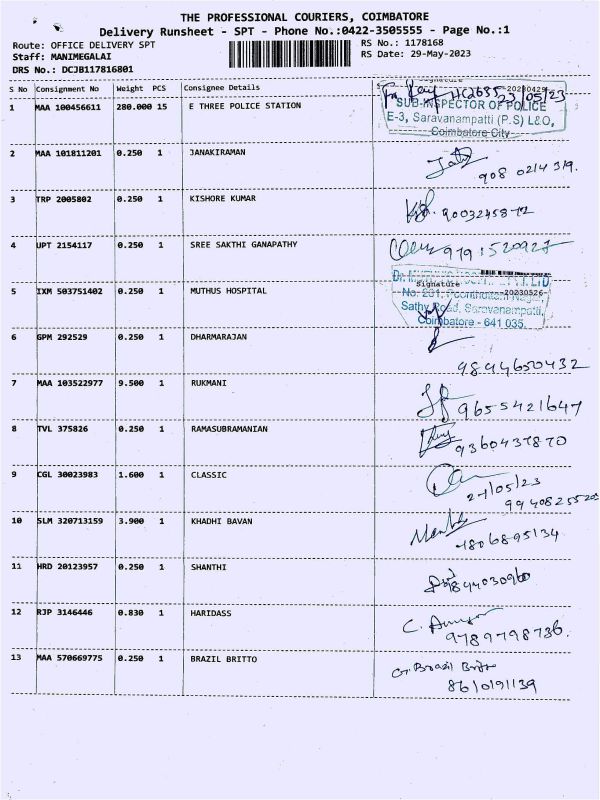 THE PROFESSIONAL COURIERS, COIMBATORE
Delivery Runsheet - SPT - Phone No.:0422-3505555 - Page No.:1
Route: OFFICE DELIVERY SPT
RS No.: 1178168
Staff: MANIMEGALAI
RS Date: 29-May-2023
DRS No.: DCJB117816801
S No Consignment No Weight PCS Consignee Details Signature
20230429
23/05/23
1 MAA 100456611 280.000 15 E THREE POLICE STATION
SUB-INSPECTOR OF POLICE
E-3, Saravanampatti (P.S) L&O,
Coimbatore City
2 MAA 101811201 0.250 1 JANAKIRAMAN
908 0214 319.
3 TRP 2005802 0.250 1 KISHORE KUMAR
9003245872
4 UPT 2154117 0.250 1 SREE SAKTHI GANAPATHY
9791520927
Signature 20230526
5 IXM 503751402 0.250 1 MUTHUS HOSPITAL
Sathy Road, Saravanampatti,
Coimbatore - 641 035.
6 GPM 292529 0.250 1 DHARMARAJAN
9844650432
7 MAA 103522977 9.500 1 RUKMANI
9655421647
8 TVL 375826 0.250 1 RAMASUBRAMANIAN
9360437870
9 CGL 30023983 1.600 1 CLASSIC
/05/23
10 SLM 320713159 3.900 1 KHADHI BAVAN
11 HRD 20123957 0.250 1 SHANTHI
12 RJP 3146446 0.830 1 HARIDASS
9789798736.
13 MAA 570669775 0.250 1 BRAZIL BRITTO
Brazil Britto
8610191139